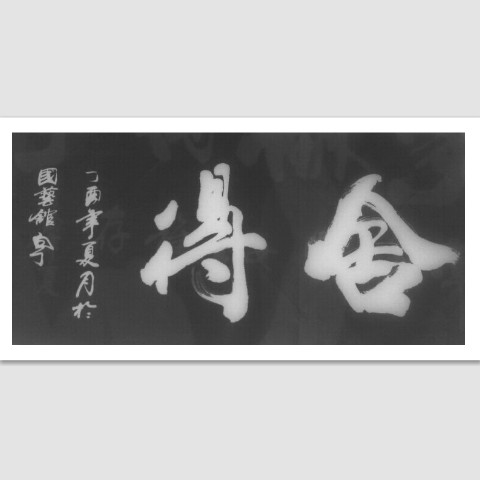 舍得
丁酉年夏月於
國藝館